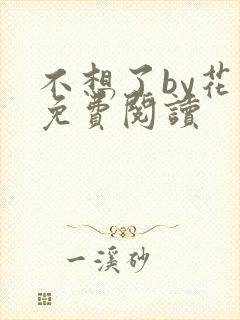 不想了by花
免費閱讀
一溪砂